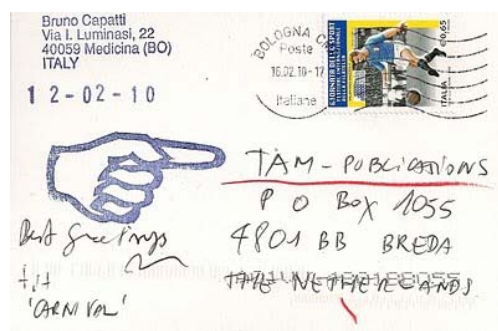 Bruno Capatti
Via I. Luminasi, 22
40059 Medicina (BO)
ITALY
12-02-10
BOLOGNA
Poste
16.02.10-17
Italiane
GIORNATA DELLO SPORT
€0,65
ITALIA
TAM-PUBLICATIONS
P O Box 1055
4801 BB BREDA
THE NETHERLANDS
Best Greetings
tit
'CARNIVAL'